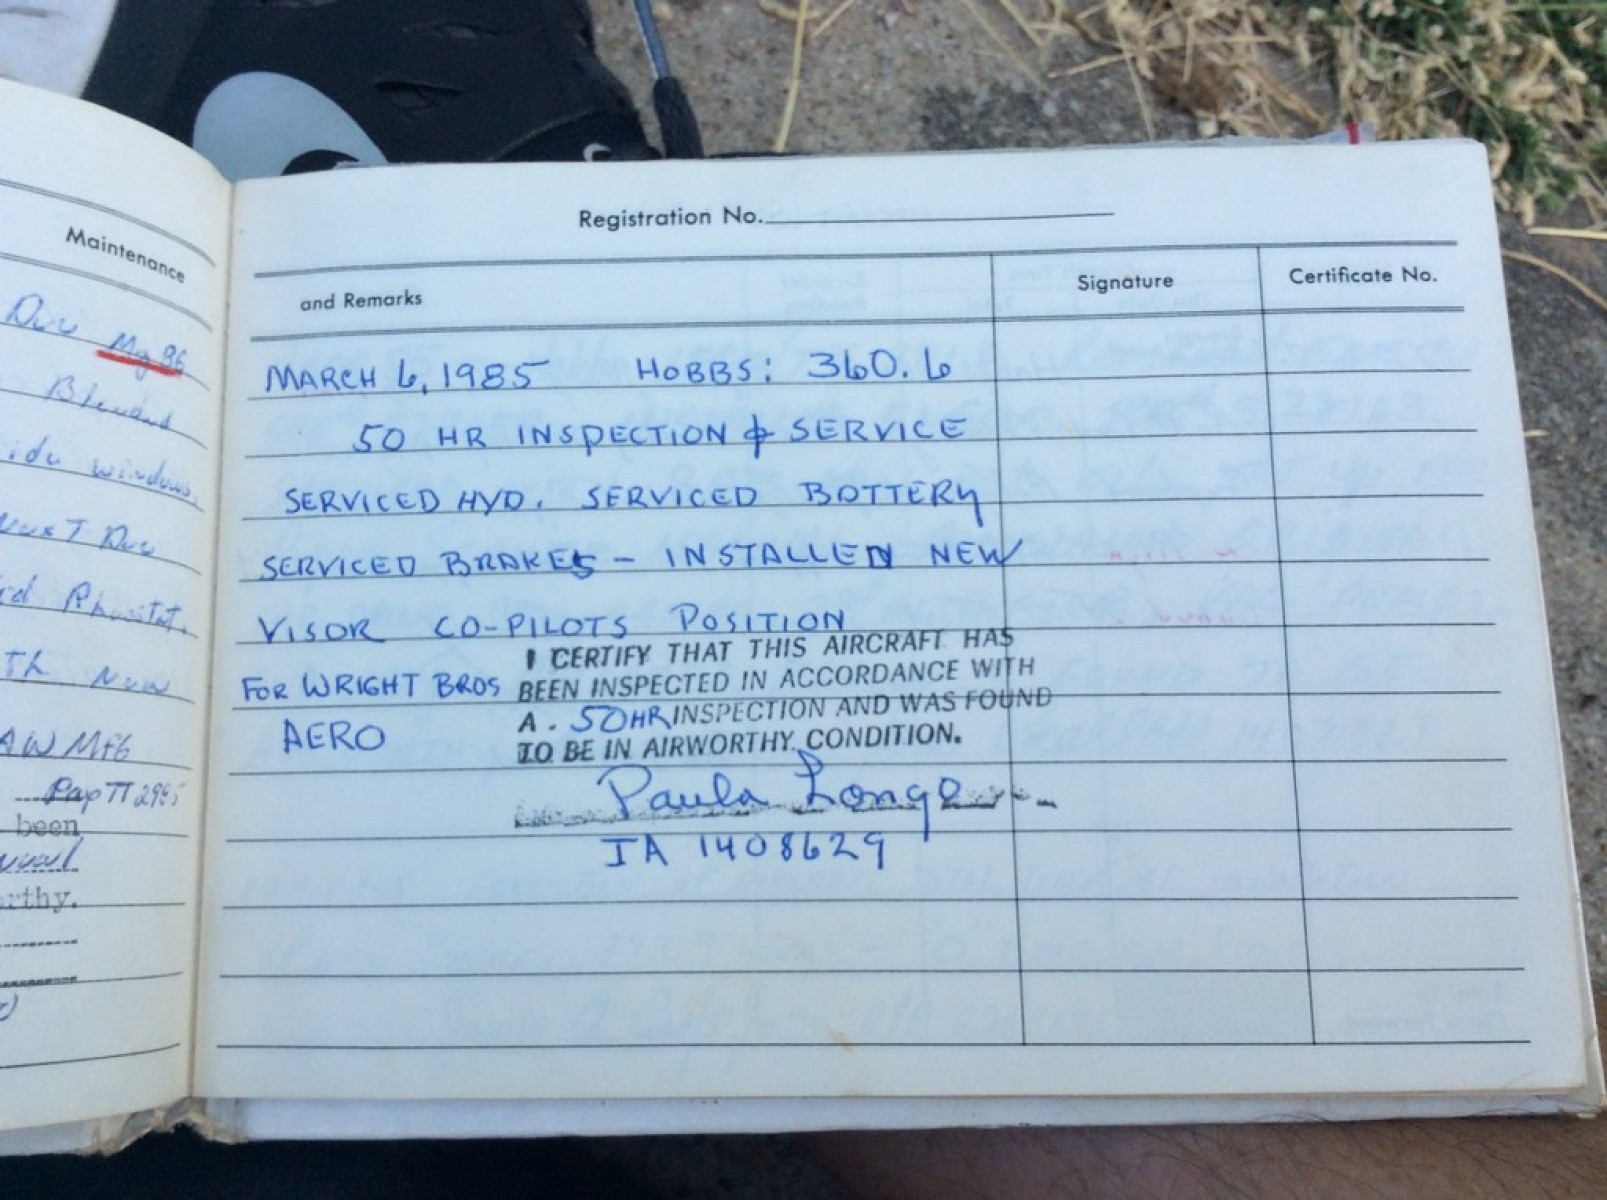 Maintenance
Due My 86
Blend
windows
Next Due
Th New
AW MFG
been
orthy.
Registration No.
and Remarks
Signature
Certificate No.
MARCH 6, 1985 HOBBS: 360.6
50 HR INSPECTION & SERVICE
SERVICED HYD. SERVICED BOTTERY
SERVICED BRAKES - INSTALLED NEW
VISOR CO-PILOTS POSITION
FOR WRIGHT BROS
AERO
I CERTIFY THAT THIS AIRCRAFT HAS
BEEN INSPECTED IN ACCORDANCE WITH
A. 50HR INSPECTION AND WAS FOUND
TO BE IN AIRWORTHY CONDITION.
Paula Longo
IA 1408629